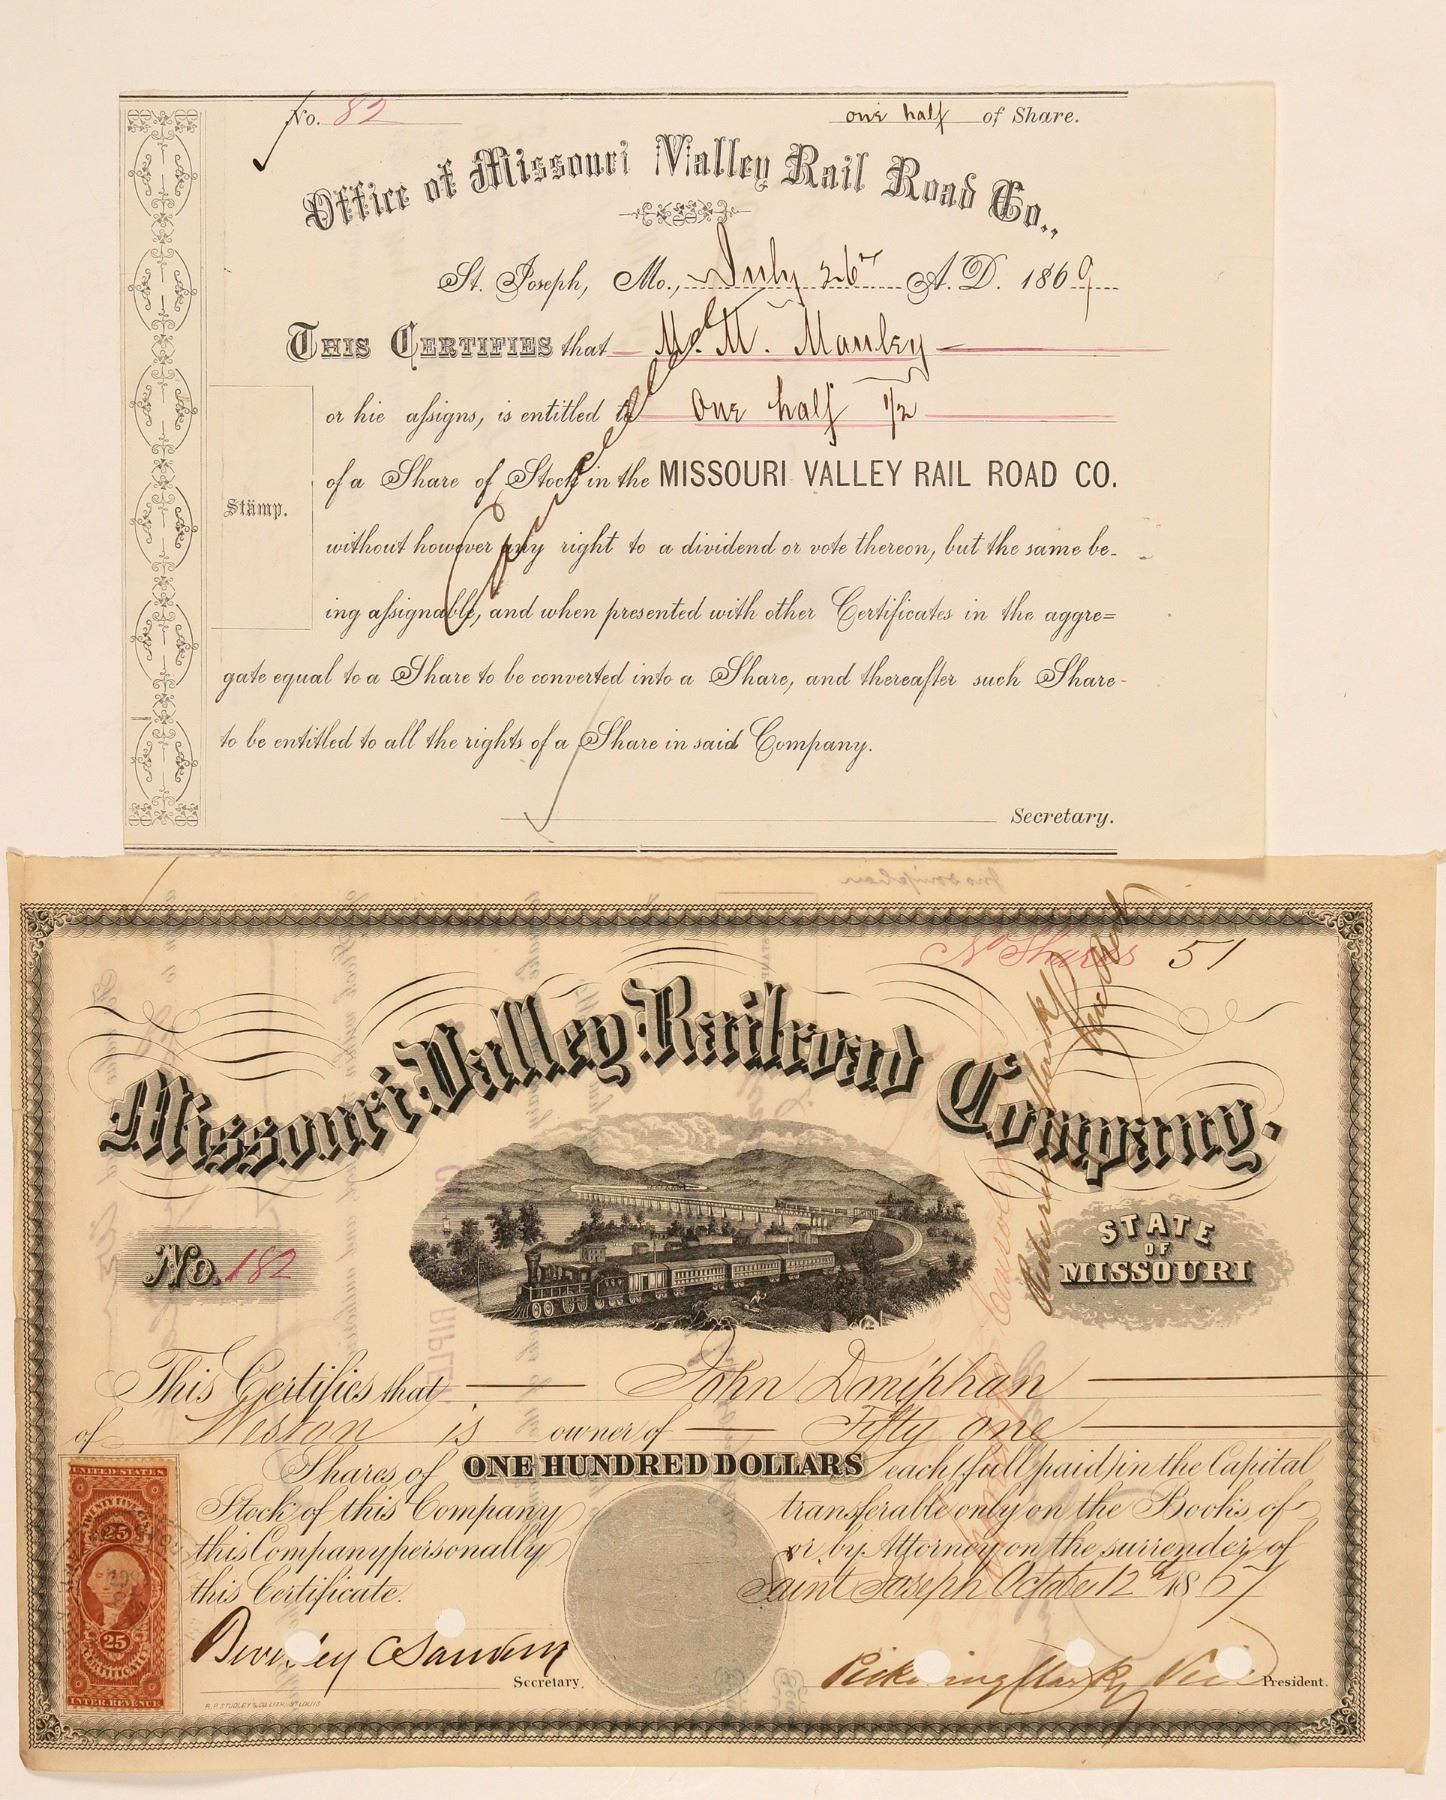 No. 82 one half of Share.
Office of Missouri Valley Rail Road Co.,
St. Joseph, Mo., July 26th A.D. 1869
THIS CERTIFIES that M. M. Manley
or his assigns, is entitled to One half 1/2
of a Share of Stock in the MISSOURI VALLEY RAIL ROAD CO.
Stamp.
without however any right to a dividend or vote thereon, but the same be-
ing assignable, and when presented with other Certificates in the aggre=
gate equal to a Share to be converted into a Share, and thereafter such Share
to be entitled to all the rights of a Share in said Company.
Cancelled
Secretary.
No Shares 51
Missouri Valley Railroad Company.
No. 182
STATE
OF
MISSOURI
This Certifies that John Doniphan
of Weston is owner of Fifty one
Shares of ONE HUNDRED DOLLARS each (full paid) in the Capital
Stock of this Company transferable only on the Books of
this Company personally or by Attorney on the surrender of
this Certificate. Saint Joseph October 12th 1867
UNITED STATES
TWENTY FIVE CTS
25
25
CERTIFICATE
INTER. REVENUE
Secretary.
Pickering Clark Vice President.
R. P. STUDLEY & CO. LITH. ST LOUIS